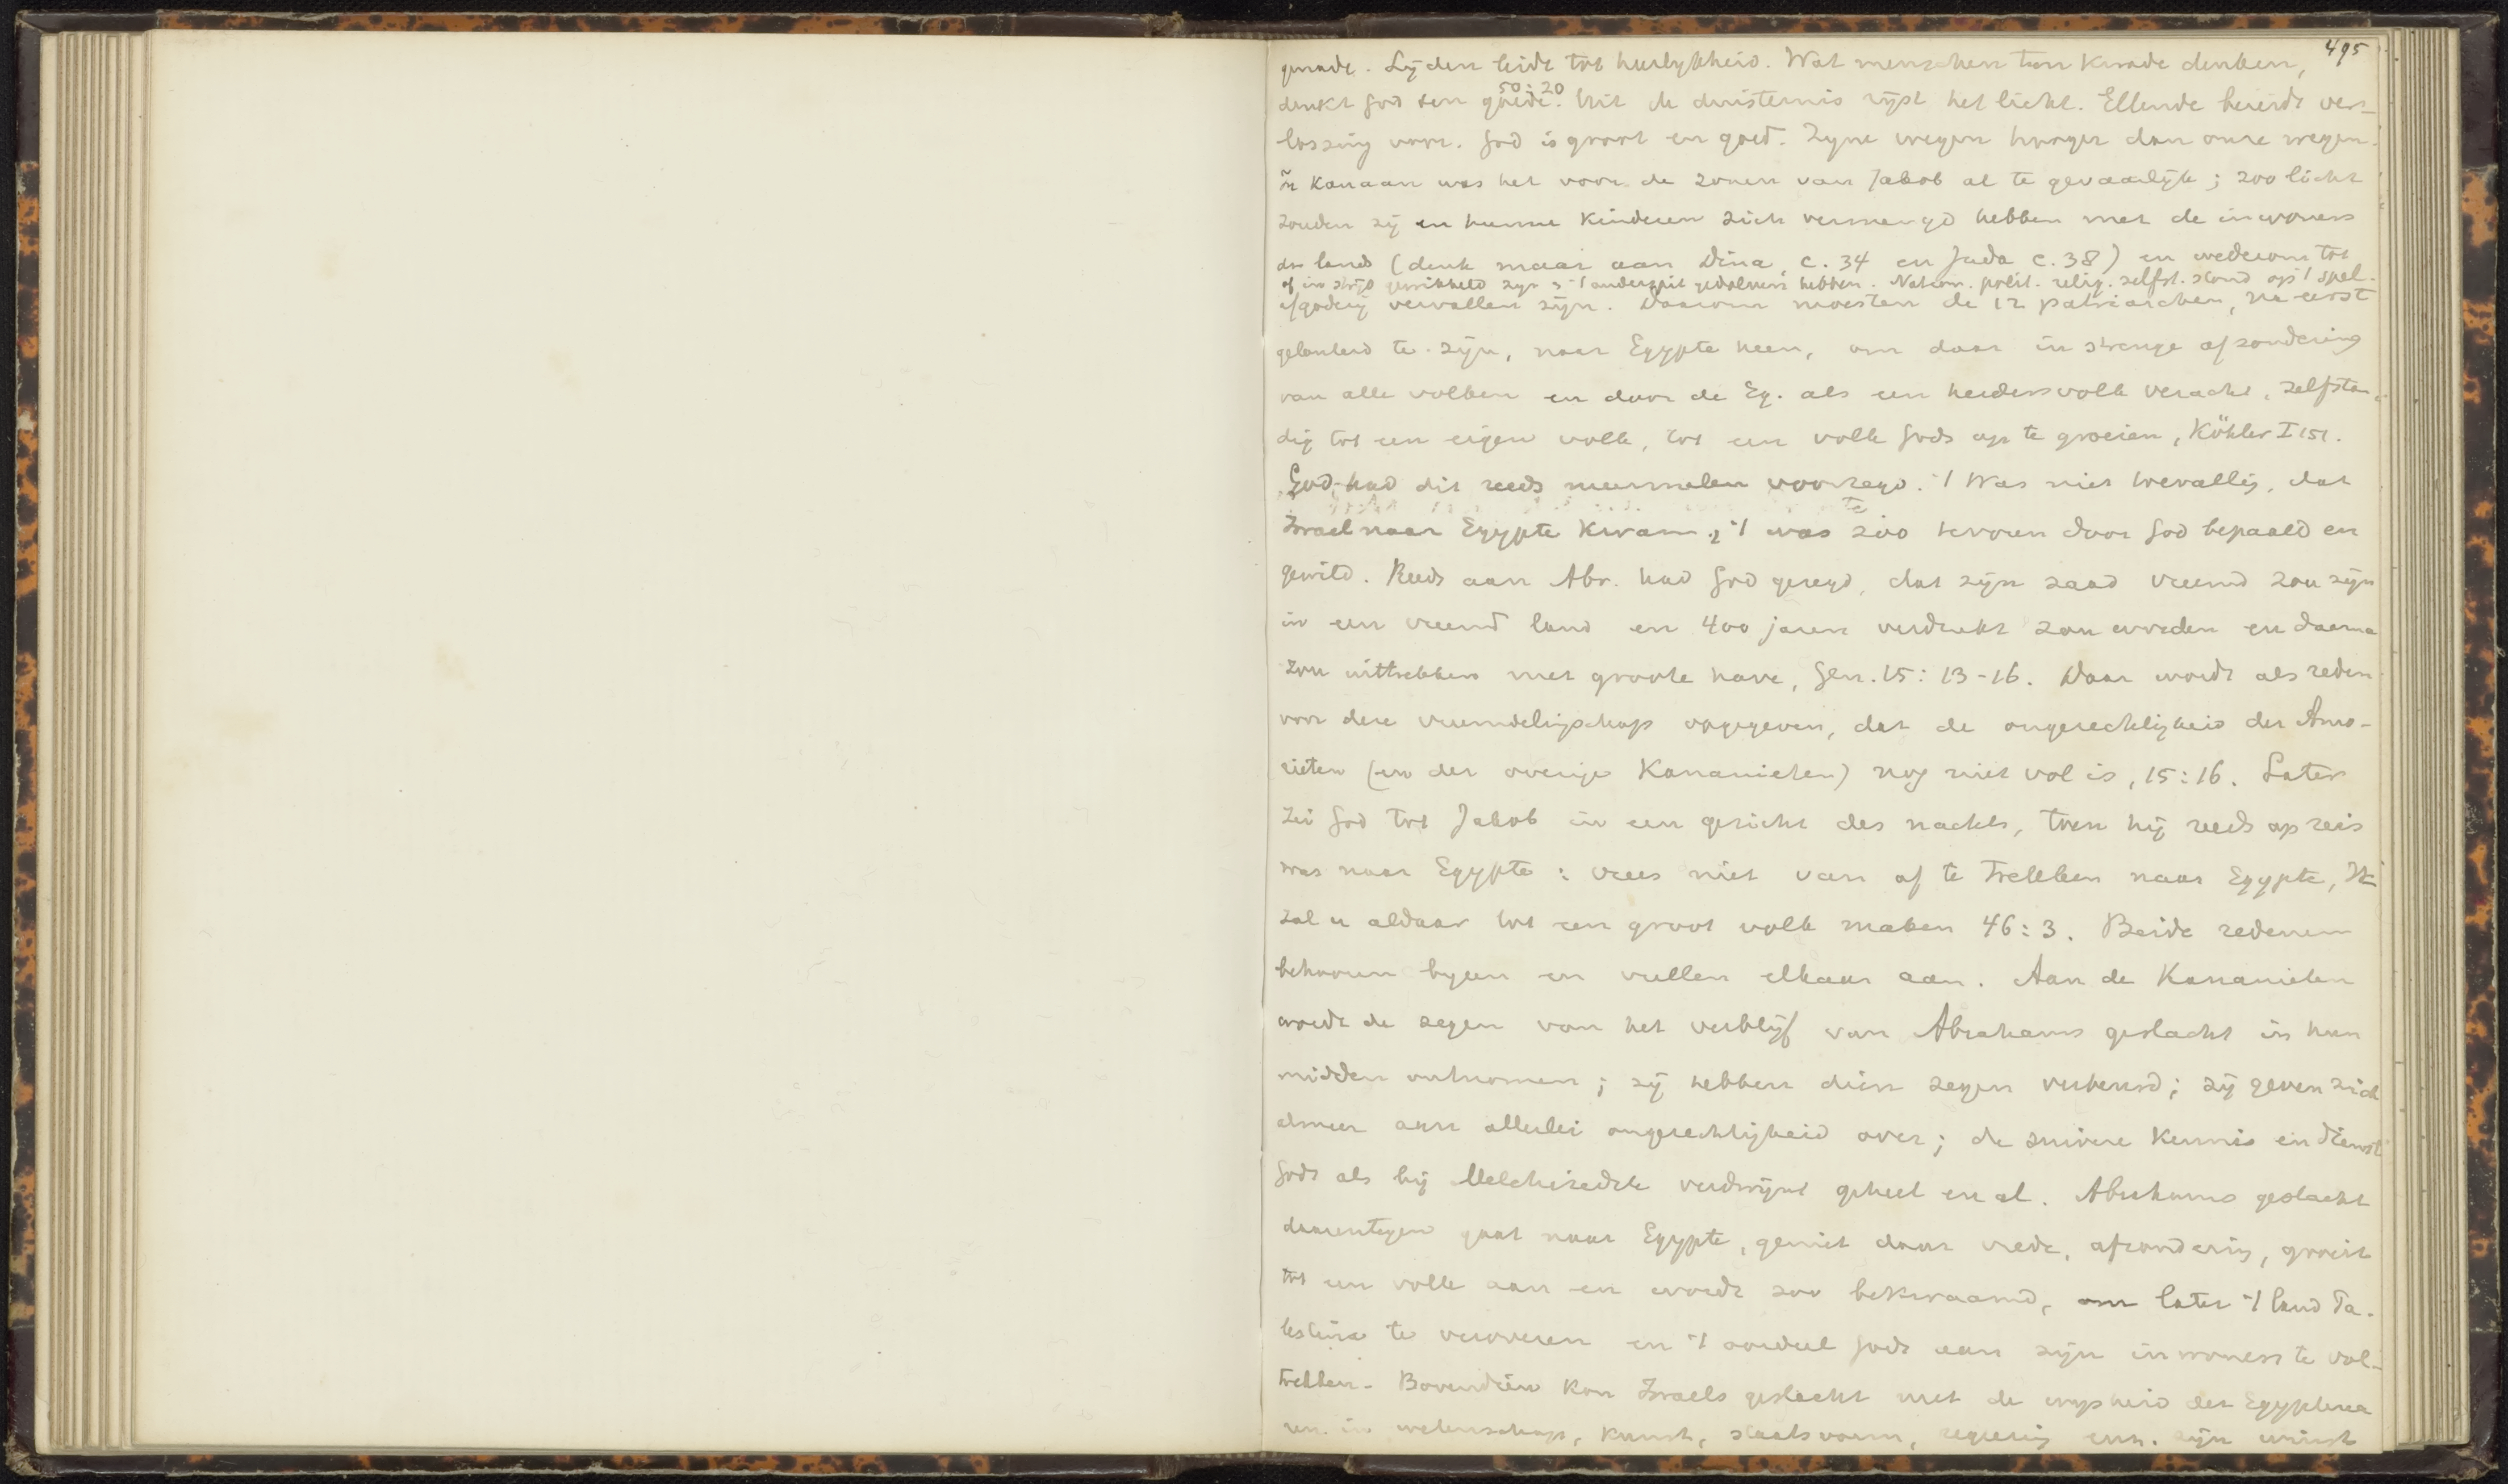 495
genade. Lijden leidt tot heerlykheid. Wat menschen ten kwade denken,
50:20
denkt God ten goede. Uit de duisternis rijst het licht. Ellende bereidt ver-
lossing voor. God is groot en goed. Zyne wegen hooger dan onze wegen.
in Kanaan was het voor de zonen van Jakob al te gevaarlijk; zoo licht
zouden zij en hunne kinderen zich vermengd hebben met de inwoners
des lands (denk maar aan Dina, c. 34 en Juda c. 38) en wederom tot
of in strijd gewikkeld zyn en 't onderspit gedolven hebben. Nation. polit. relig. zelfst. stond op 't spel.
afgoderij vervallen zijn. Daarom moesten de 12 patriarchen, na eerst
gelouterd te zijn, naar Egypte heen, om daar in strenge afzondering
van alle volken en door de Eg. als een herdersvolk veracht, zelfstan-
dig tot een eigen volk, tot een volk Gods op te groeien, Köhler I 151.
God had dit reeds meermalen voorzegd. 't Was niet toevallig, dat
Israel naar Egypte kwam; 't was zoo te voren door God bepaald en
gewild. Reeds aan Abr. had God gezegd, dat zijn zaad vreemd zou zijn
in een vreemd land en 400 jaren verdrukt zou worden en daarna
zou uittrekken met groote have, Gen. 15:13-16. Daar wordt als reden
voor deze vreemdelingschap opgegeven, dat de ongerechtigheid der Amo-
rieten (en der overige Kananieten) nog niet vol is, 15:16. Later
zei God tot Jakob in een gezicht des nachts, toen hij reeds op reis
was naar Egypte: vrees niet van af te trekken naar Egypte, Ik
zal u aldaar tot een groot volk maken 46:3. Beide redenen
behooren byeen en vullen elkaar aan. Aan de Kananieten
wordt de zegen van het verblijf van Abrahams geslacht in hun
midden ontnomen; zij hebben dien zegen verbeurd; zij geven zich
almeer aan allerlei ongerechtigheid over; de zuivere kennis en dienst
Gods als bij Melchizedek verdwijnt geheel en al. Abrahams geslacht
daarentegen gaat naar Egypte, geniet daar vrede, afzondering, groeit
tot een volk aan en wordt zoo bekwaamd, om later 't land Pa-
lestina te veroveren en 't oordeel Gods aan zijn inwoners te vol-
trekken. Bovendien kon Israels geslacht met de wysheid der Egyptena-
ren in wetenschap, kunst, staatsvorm, regeering enz. zijn winst